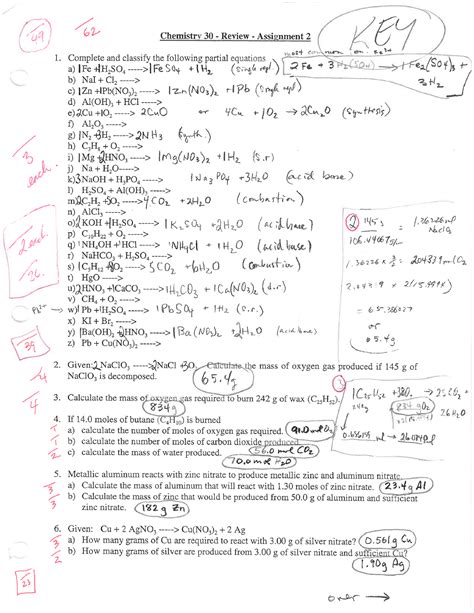 49
62
Chemistry 30 - Review - Assignment 2
KEY
most common
1. Complete and classify the following partial equations
2 Fe + 3 H₂(SO₄) → 1 Fe₂(SO₄)₃ + 3H₂
a) 1Fe + 1H₂SO₄ -----> 1FeSO₄ + 1H₂ (single repl)
b) NaI + Cl₂ ----->
c) 1Zn + 1Pb(NO₃)₂ -----> 1Zn(NO₃)₂ + 1Pb (Single repl)
d) Al(OH)₃ + HCl ----->
e) 2Cu + 1O₂ -----> 2CuO or 4Cu + 1O₂ → 2Cu₂O (Synthesis)
f) Al₂O₃ ----->
g) 1N₂ + 3H₂ -----> 2NH₃ (synth.)
h) C₂H₆ + O₂ ----->
3 each
i) 1Mg + 2HNO₃ -----> 1Mg(NO₃)₂ + 1H₂ (s.r)
j) Na + H₂O ----->
k) 3NaOH + H₃PO₄ -----> 1Na₃PO₄ + 3H₂O (acid base)
l) H₂SO₄ + Al(OH)₃ ----->
m) 2C₂H₂ + 5O₂ -----> 4CO₂ + 2H₂O (combustion)
n) AlCl₃ ----->
o) 2KOH + 1H₂SO₄ -----> 1K₂SO₄ + 2H₂O (acid base)
p) C₂₅H₅₂ + O₂ ----->
q) 1NH₄OH + 1HCl -----> 1NH₄Cl + 1H₂O (acid base)
r) NaHCO₃ + H₂SO₄ ----->
s) 1C₅H₁₂ + 8O₂ -----> 5CO₂ + 6H₂O (combustion)
t) HgO ----->
u) 2HNO₃ + 1CaCO₃ -----> 1H₂CO₃ + 1Ca(NO₃)₂ (d.r)
v) CH₄ + O₂ ----->
Pb²⁺
w) 1Pb + 1H₂SO₄ -----> 1PbSO₄ + 1H₂ (s.r)
x) KI + Br₂ ----->
y) 1Ba(OH)₂ + 2HNO₃ -----> 1Ba(NO₃)₂ + 2H₂O (acid base)
z) Pb + Cu(NO₃)₂ ----->
2 each
36
39
2 145g
106.44067g/m
= 1.36226 mol NaClO₃
or
65.4g
2. Given: 2 NaClO₃ -----> 2NaCl + 3O₂ Calculate the mass of oxygen produced if 145 g of
NaClO₃ is decomposed.
65.4g
4
3. Calculate the mass of oxygen gas required to burn 242 g of wax (C₂₅H₅₂).
834g
4
834g O₂
26H₂O
4. If 14.0 moles of butane (C₄H₁₀) is burned
a) calculate the number of moles of oxygen gas required. 91.0 mol O₂
b) calculate the number of moles of carbon dioxide produced. 56.0 mol CO₂
c) calculate the mass of water produced.
70.0 mol H₂O
5. Metallic aluminum reacts with zinc nitrate to produce metallic zinc and aluminum nitrate.
a) Calculate the mass of aluminum that will react with 1.30 moles of zinc nitrate. 23.4g Al
b) Calculate the mass of zinc that would be produced from 50.0 g of aluminum and sufficient
zinc nitrate. 182g Zn
6. Given: Cu + 2 AgNO₃ -----> Cu(NO₃)₂ + 2 Ag
a) How many grams of Cu are required to react with 3.00 g of silver nitrate? 0.561g Cu
b) How many grams of silver are produced from 3.00 g of silver nitrate and sufficient Cu?
1.90g Ag
23
over →